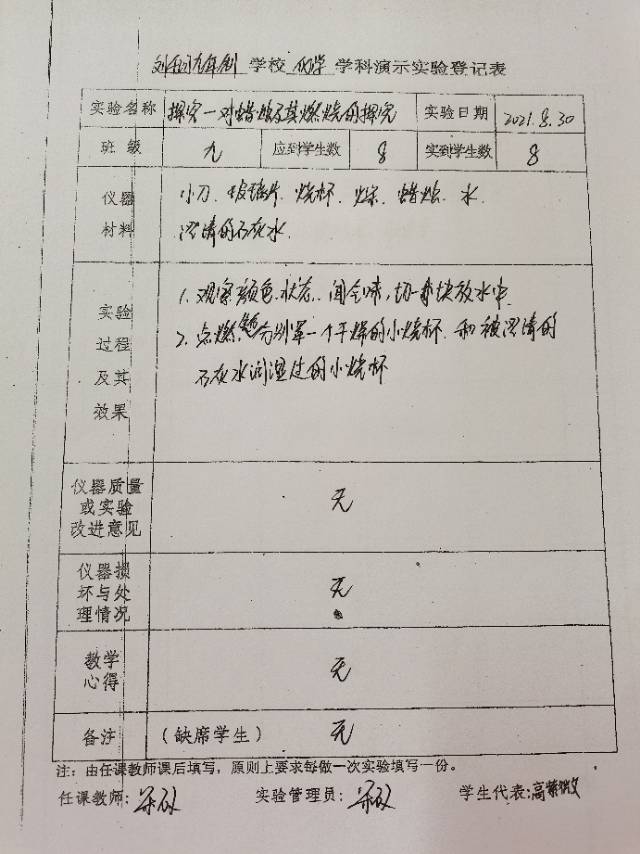 学校 化学 学科演示实验登记表
实验名称 探究一对蜡烛及其燃烧的探究 实验日期 2021.8.30
班级 九 应到学生数 8 实到学生数 8
仪器 小刀、玻璃片、烧杯、蜡烛、水
材料 澄清的石灰水.
实验 1、观察颜色、状态、闻气味,切一小块放水中
过程 2、点燃 分别罩一个干燥的小烧杯和被澄清的
及其 石灰水润湿过的小烧杯
效果
仪器质量
或实验 无
改进意见
仪器损
坏与处 无
理情况
教学 无
心得
备注 (缺席学生) 无
注:由任课教师课后填写,原则上要求每做一次实验填写一份。
任课教师: 实验管理员: 学生代表:高